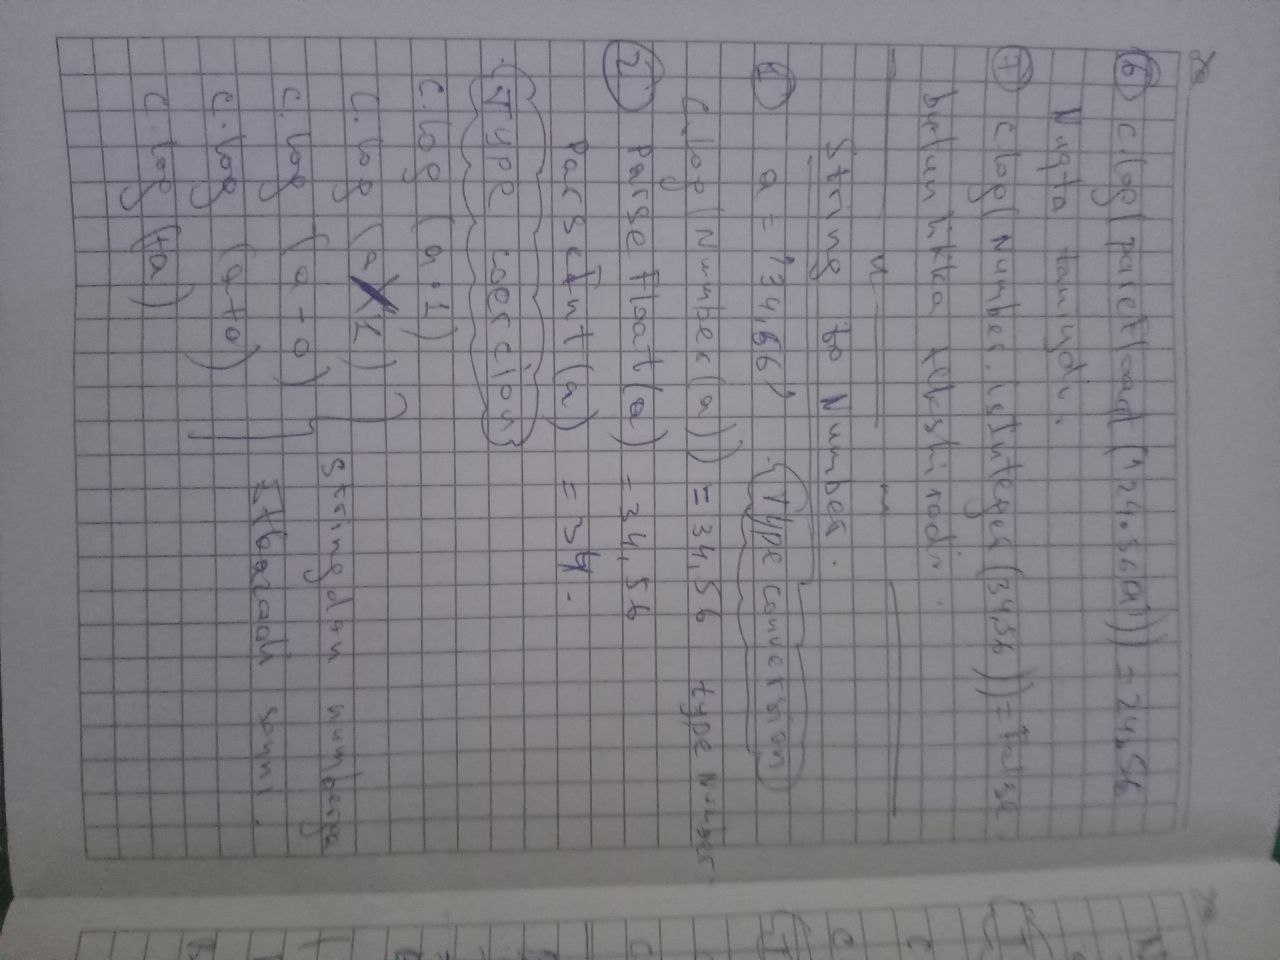 ⑥ C.log(parseFloat('24.56a')) = 24,56
Nuqta taniydi.
⑦ C.log(Number.isInteger(34,56)) = false
butunlikka tekshiradi.
String to Number.
① a = '34,66' {Type conversion}
C.log(Number(a)) = 34,56 type Number.
② parseFloat(a) = 34,56
parseInt(a) = 34.
{Type coercion}
C.log (a·1)
C.log (a/1)
C.log (a-0)
C.log (a+0)
C.log (+a)
Stringdan numberga
sonni.